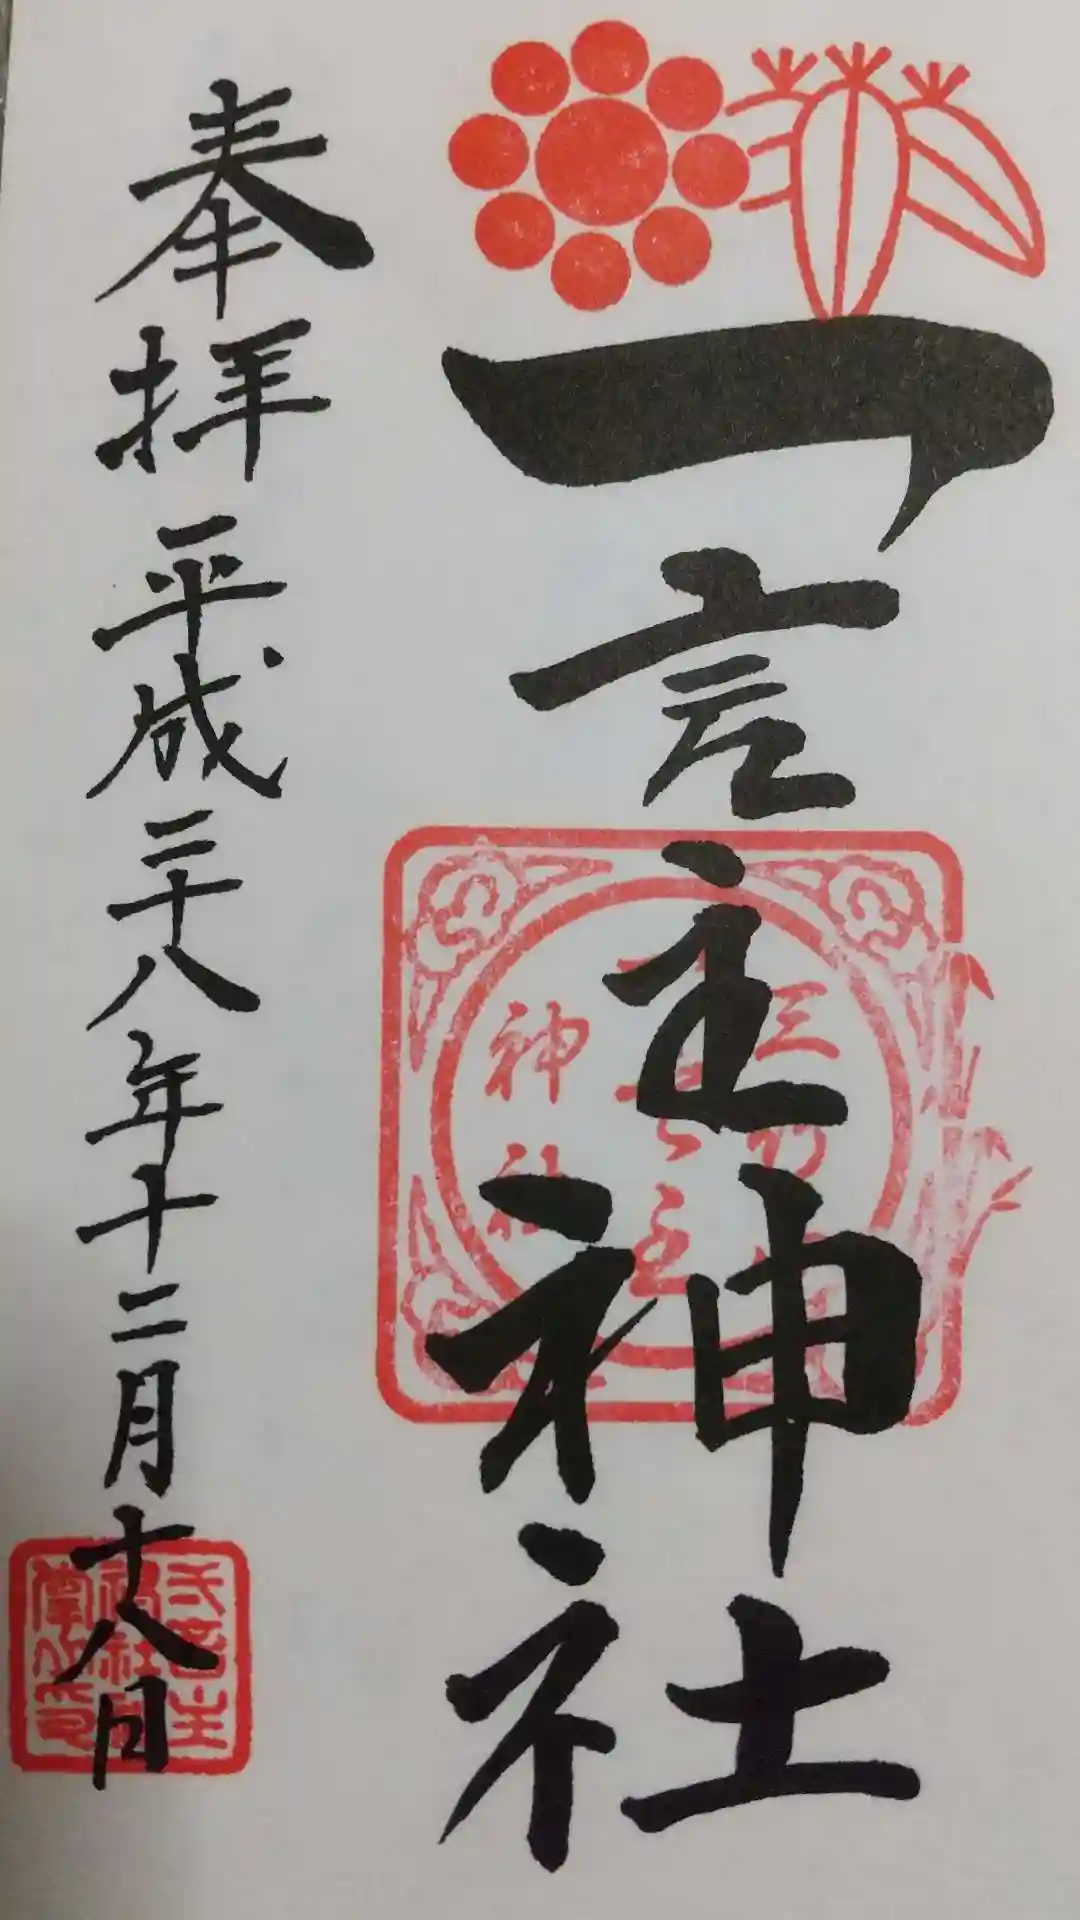 一言主神社
奉拝 平成二十八年十二月十八日
神社